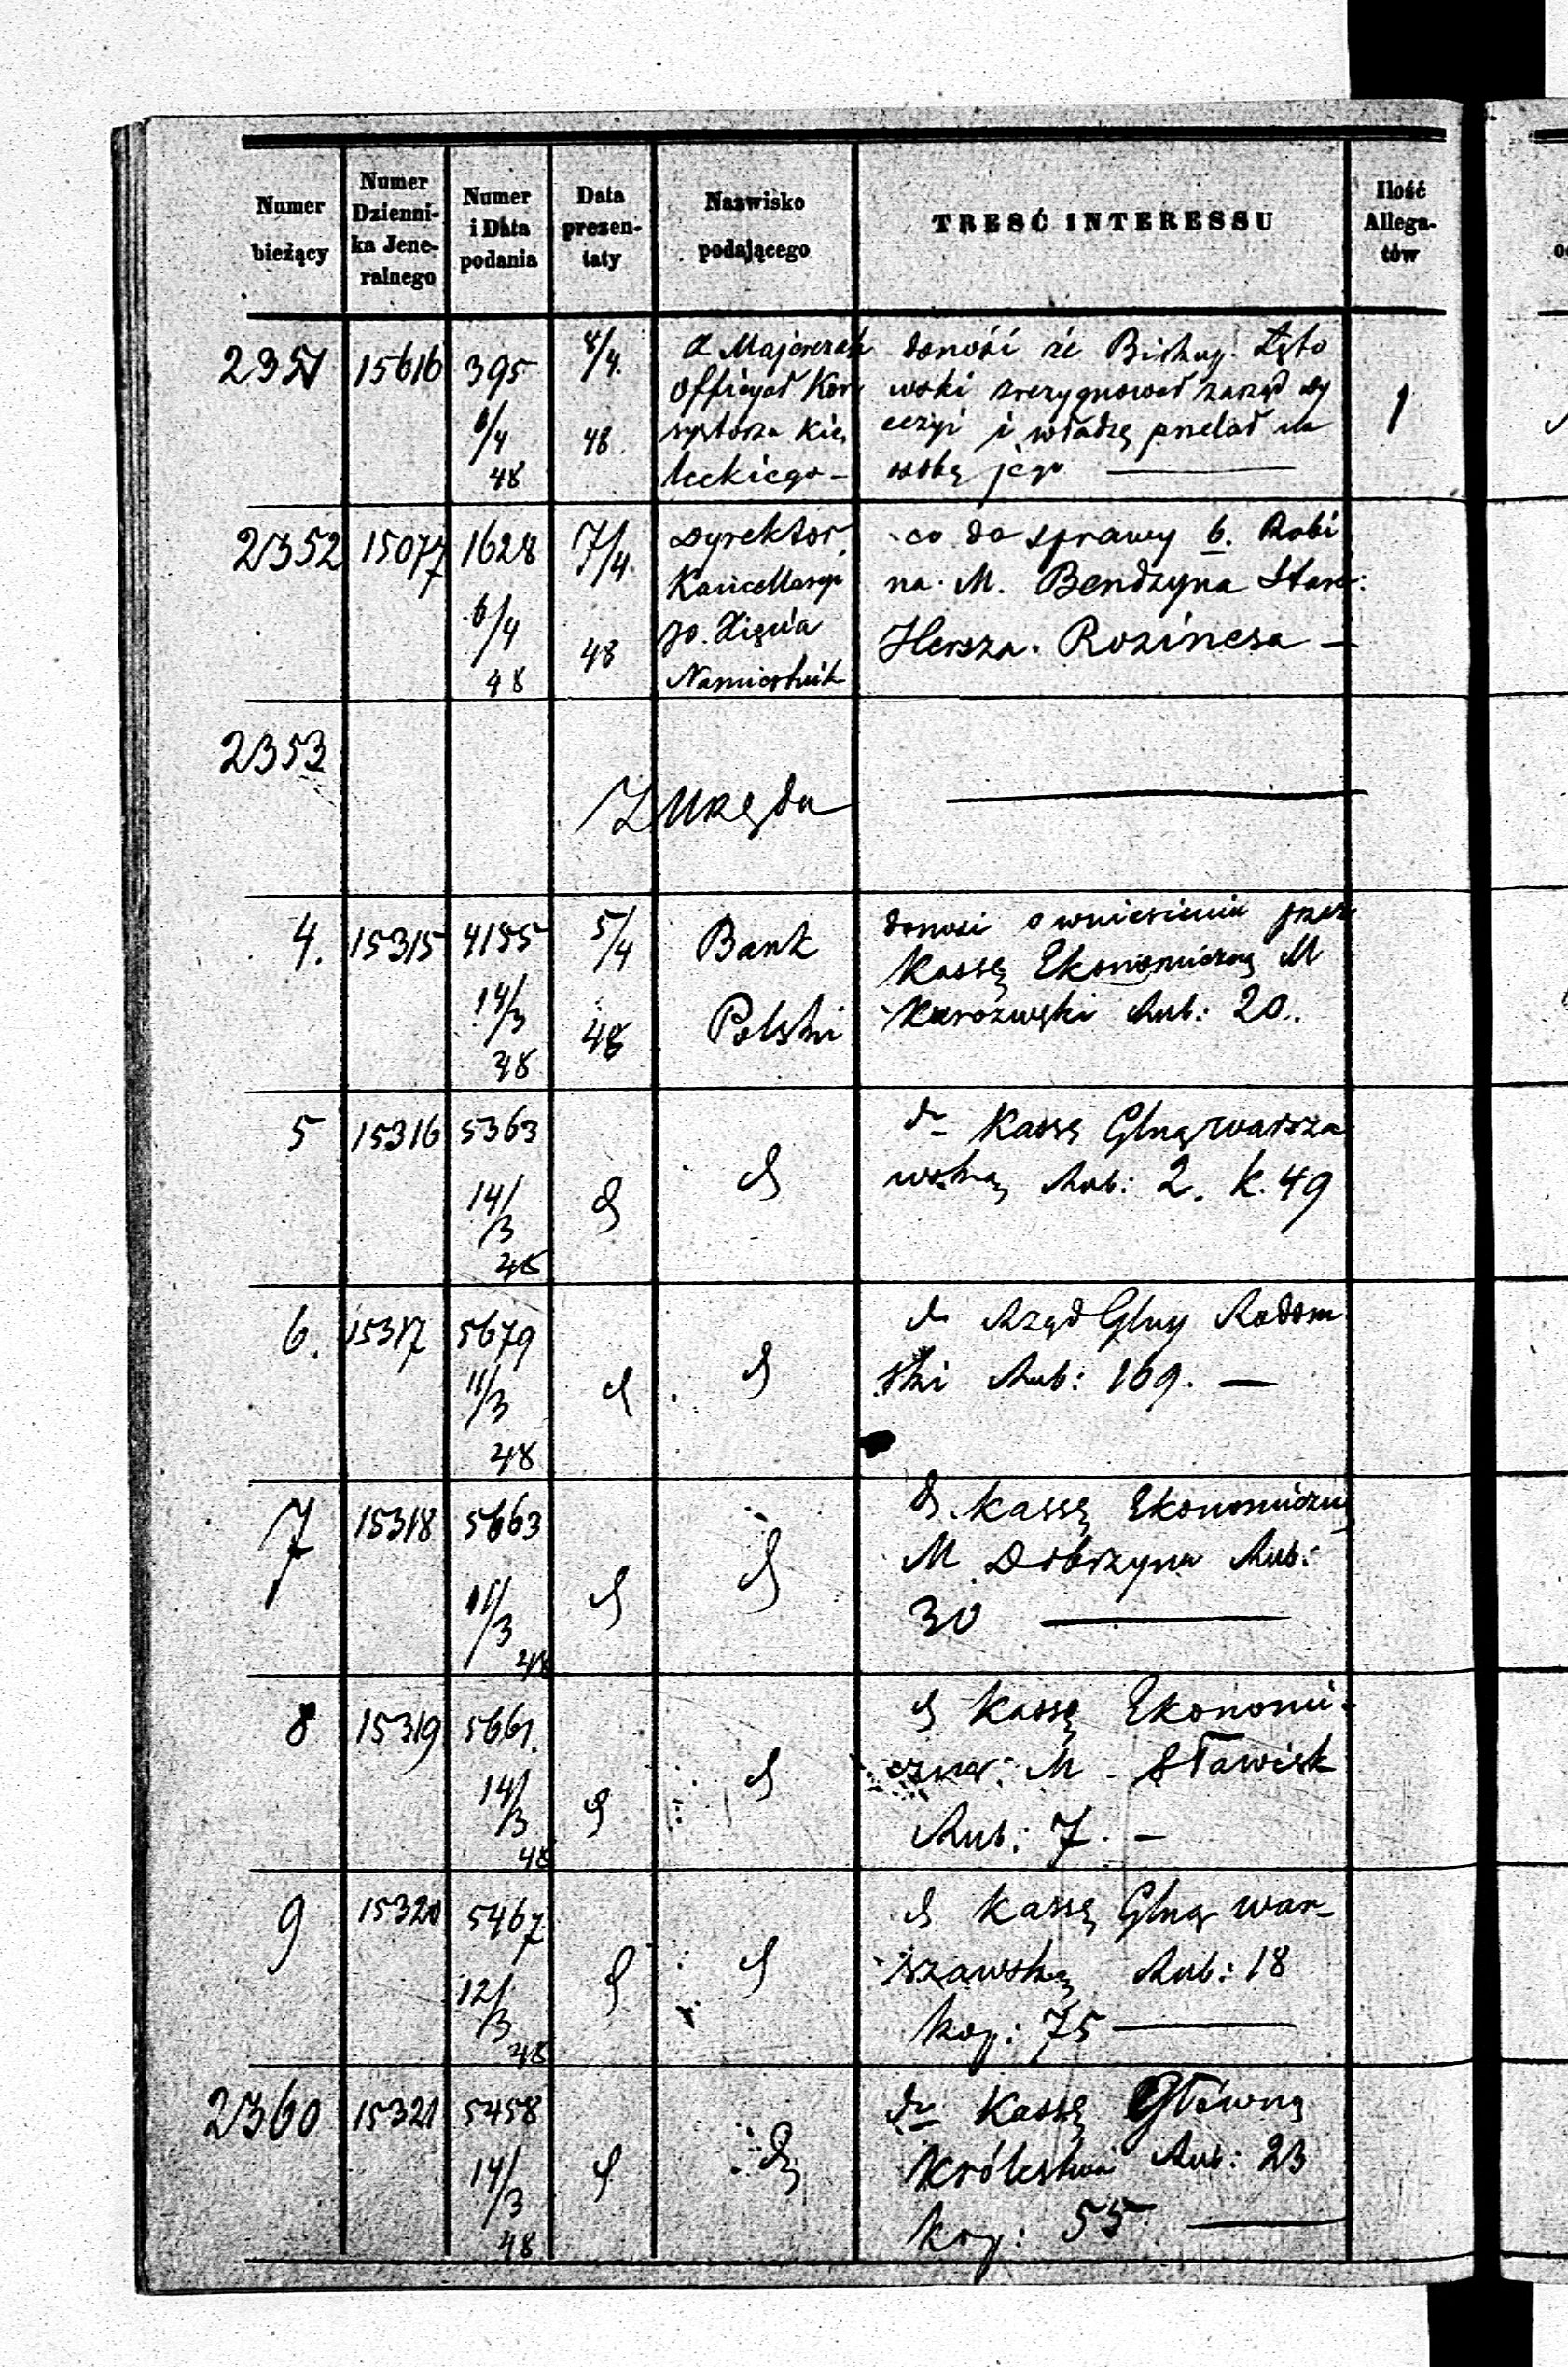 Numer bieżący
Numer Dzienni-ka Jene-ralnego
Numer i Data podania
Data prezen-taty
Nazwisko podającego
TREŚĆ INTERESSU
Ilość Allega-tów
2351 15616 395 6/4 48 8/4. 48.
A Majerczak
Officyał Kon
systorza Kie
leckiego –
donośi że Biskup. Łęto
wski zrezygnował zarząd dy
ecezyi i władzę przelał na
osobę jego —
1
2352 15077 1628 6/4 48 7/4. 48
Dyrektor
Kancellaryi
JO. Xięcia
Namiestnik
co do sprawy b. Rabi
na. M. Bendzyna Star:
Hersza. Rozinesa –
2353
Z Urzędu —
4. 15315 4155 14/3 48 5/4 48
Bank
Polski
donosi o wniesieniu przez
Kassę Ekonomiczną M
Kurozwęki Rub: 20.
5 15316 5363 14/3 48 d d
do Kassę Glną warsza
wską Rub: 2. k. 49
6. 15317 5679 11/3 48 d d
do Rząd Glny Radom
ski Rub: 169. —
7 15318 5663 11/3 48 d d
d. Kassę Ekonomiczną
M Dobrzyna Rub:
30 —
8 15319 5661. 14/3 48 d d
d Kassę Ekonomi-
czną: M. Stawisk
Rub: 7. –
9 15320 5467 12/3 48 d d
d Kassę Glną war-
szawską Rub: 18
kop: 75 —
2360 15321 5458 14/3 48 d d
do Kassę Główną
Królestwa Rub: 23
kop: 55 —